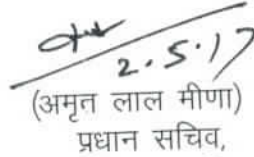 2.5.17
(अमृत लाल मीणा)
प्रधान सचिव,